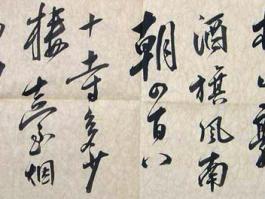 山郭
酒旗風南
朝四百八
十寺多少
樓臺烟